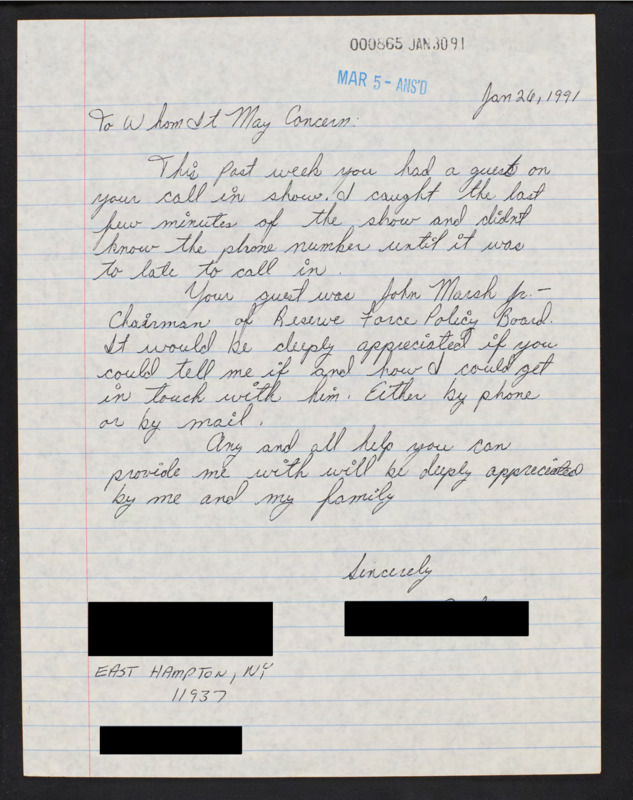 000865 JAN 30 91
MAR 5 - ANS'D
Jan 26, 1991
To Whom It May Concern:
This past week you had a guest on
your call in show. I caught the last
few minutes of the show and didnt
know the phone number until it was
to late to call in.
Your guest was John Marsh Jr. -
Chairman of Reserve Force Policy Board.
It would be deeply appreciated if you
could tell me if and how I could get
in touch with him. Either by phone
or by mail.
Any and all help you can
provide me with will be deeply appreciated
by me and my family
Sincerely
EAST HAMPTON, NY
11937